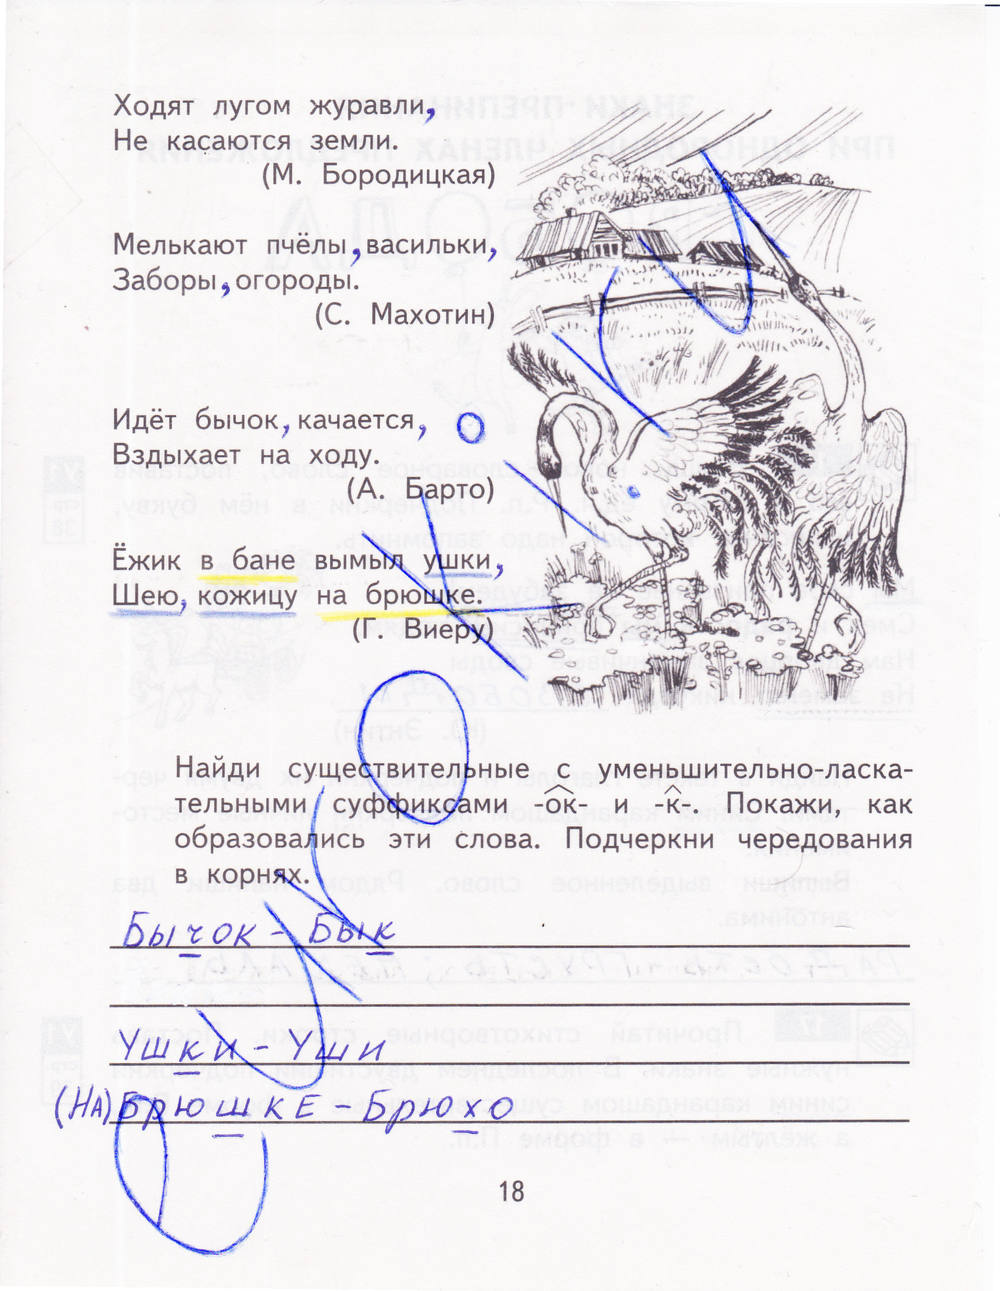 Ходят лугом журавли,
Не касаются земли.
(М. Бородицкая)
Мелькают пчёлы, васильки,
Заборы, огороды.
(С. Махотин)
Идёт бычок, качается,
Вздыхает на ходу.
(А. Барто)
Ёжик в бане вымыл ушки,
Шею, кожицу на брюшке.
(Г. Виеру)
Найди существительные с уменьшительно-ласка-
тельными суффиксами -ок- и -к-. Покажи, как
образовались эти слова. Подчеркни чередования
в корнях.
Бычок - Бык
Ушки - Уши
(На) Брюшке - Брюхо
18